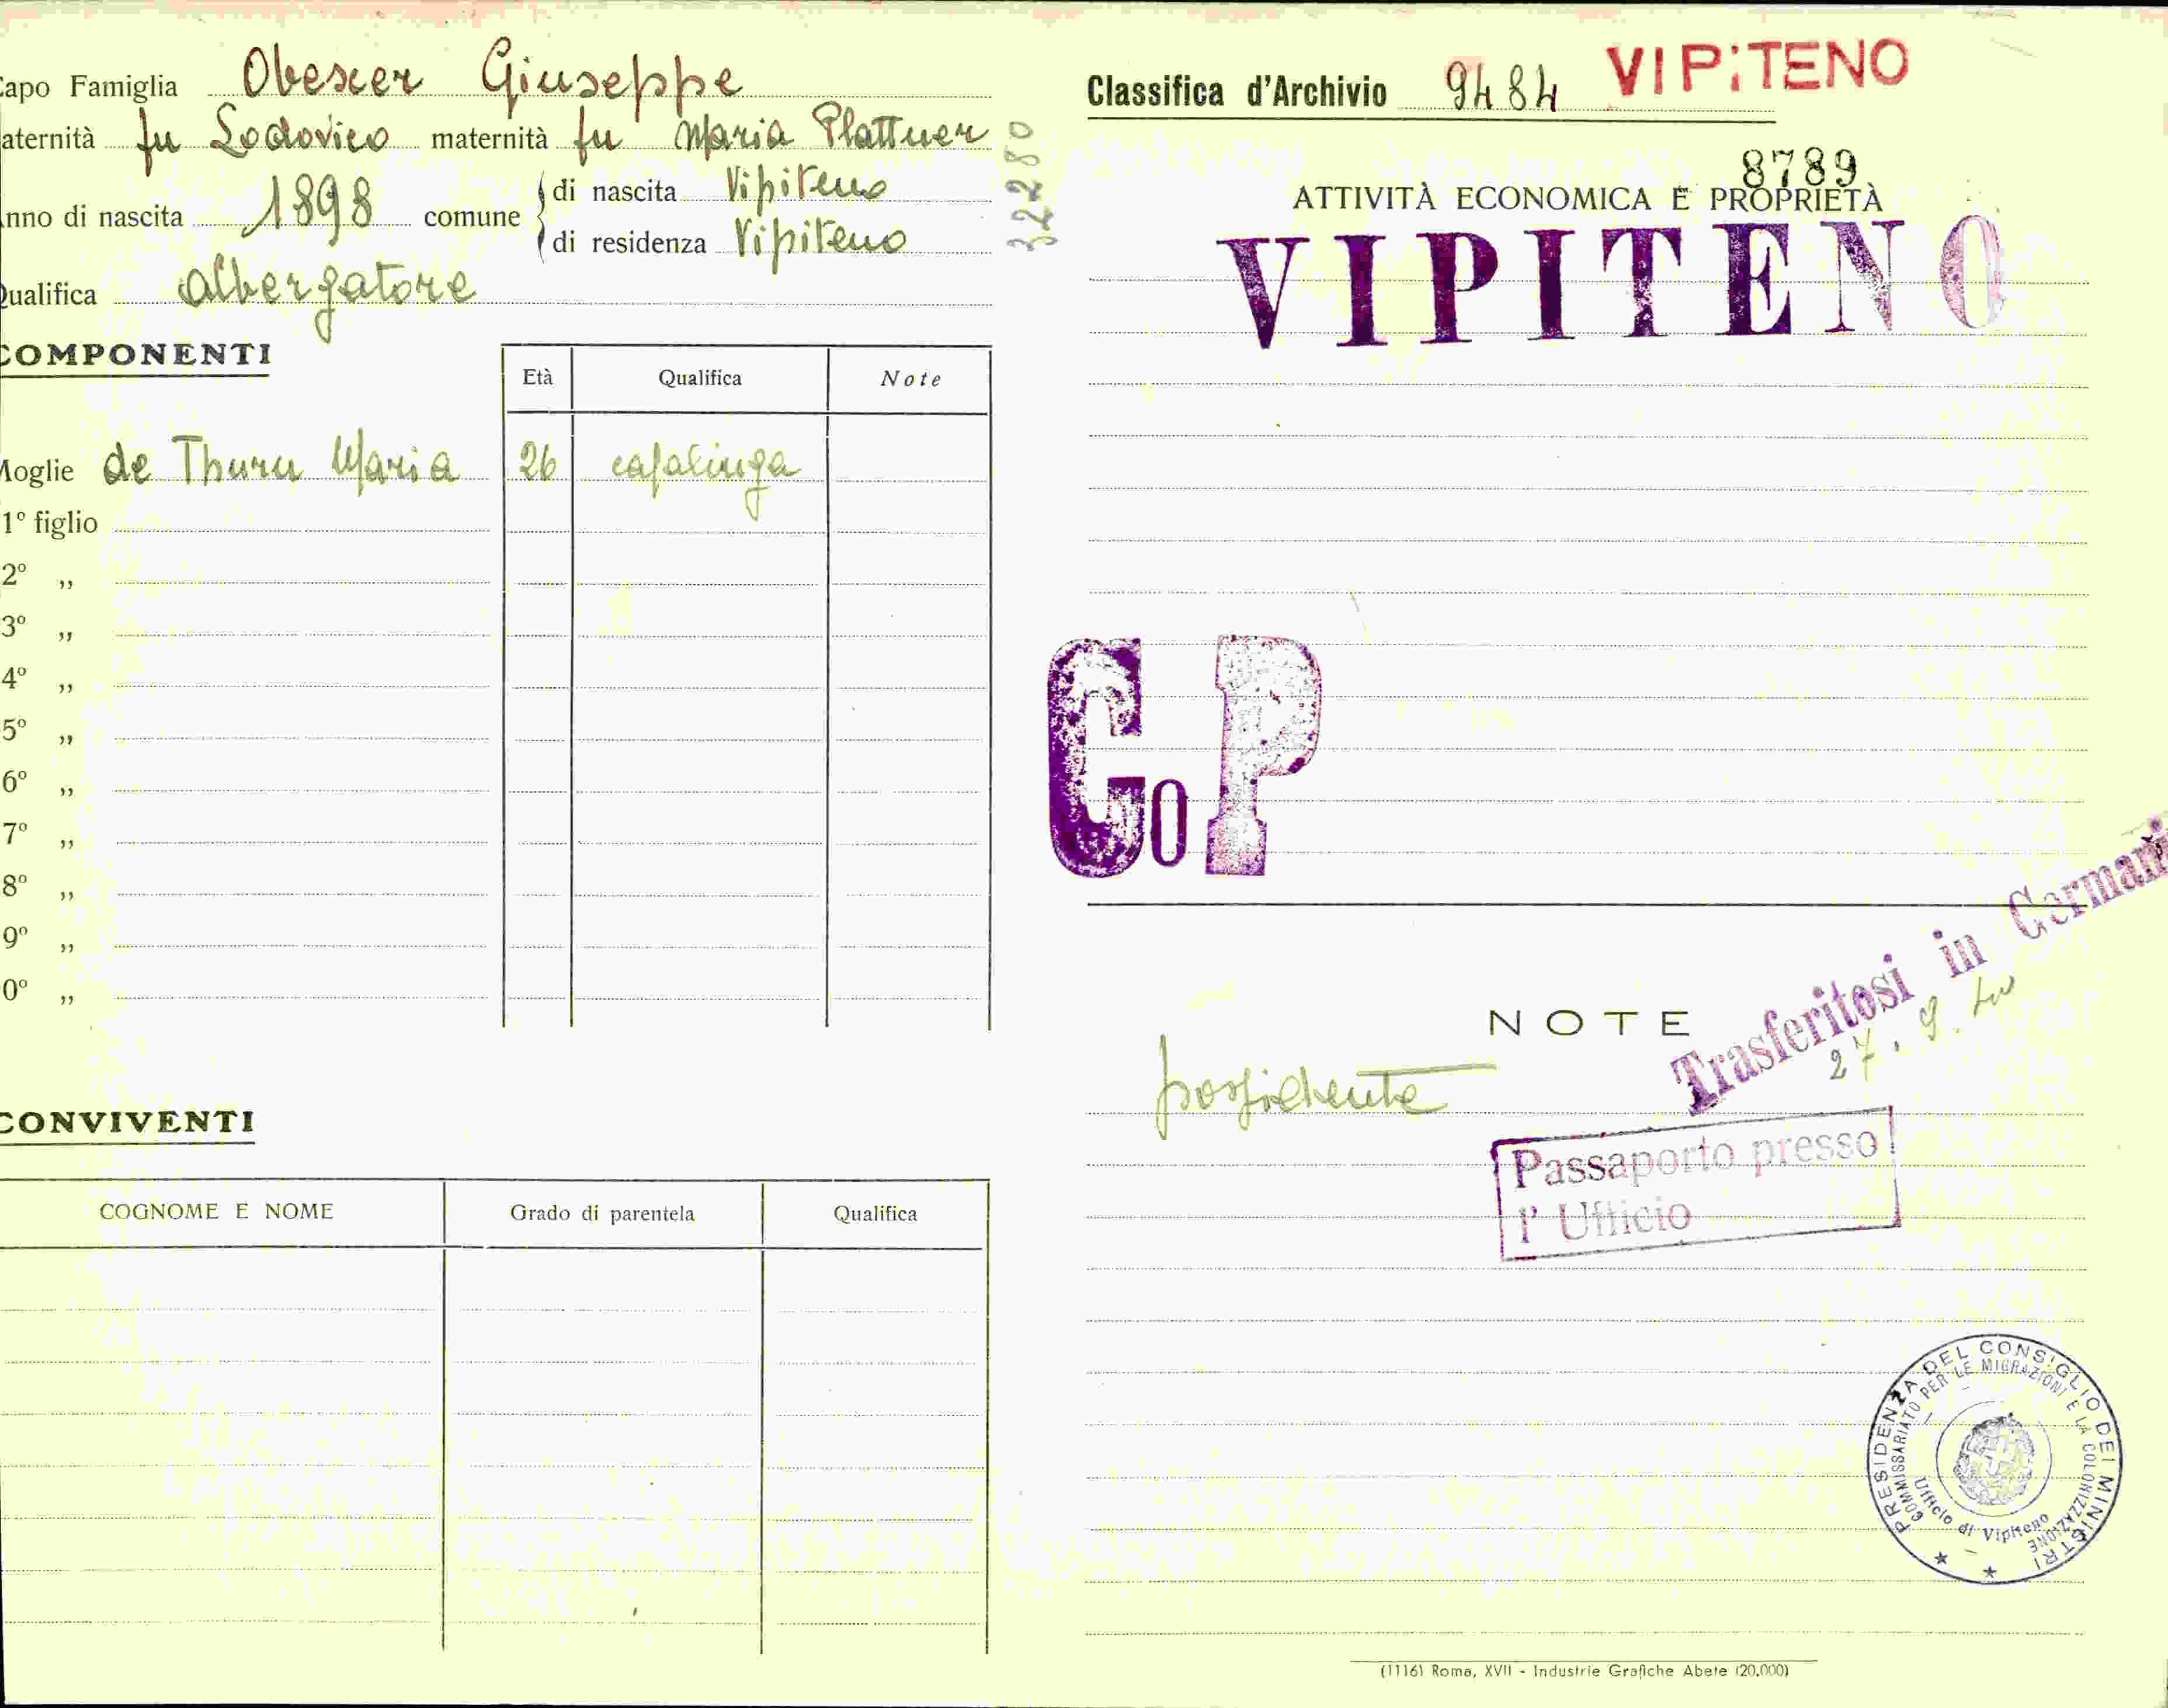 Capo Famiglia Obexer Giuseppe
aternità fu Lodovico maternità fu Maria Plattner
nno di nascita 1898 comune di nascita Vipiteno
di residenza Vipiteno
Qualifica albergatore
COMPONENTI
Età Qualifica Note
Moglie de Thurn Maria 26 casalinga
1º figlio
2º „
3º „
4º „
5º „
6º „
7º „
8º „
9º „
0º „
CONVIVENTI
COGNOME E NOME Grado di parentela Qualifica
322280
Classifica d'Archivio 9484 VIPITENO
8789
ATTIVITÀ ECONOMICA E PROPRIETÀ
VIPITENO
CoP
Trasferitosi in Germani
27.9.40
NOTE
possidente
Passaporto presso
l' Ufficio
PRESIDENZA DEL CONSIGLIO DEI MINISTRI
COMMISSARIATO PER LE MIGRAZIONI E LA COLONIZZAZIONE
Ufficio di Vipiteno
(1116) Roma, XVII - Industrie Grafiche Abete (20.000)